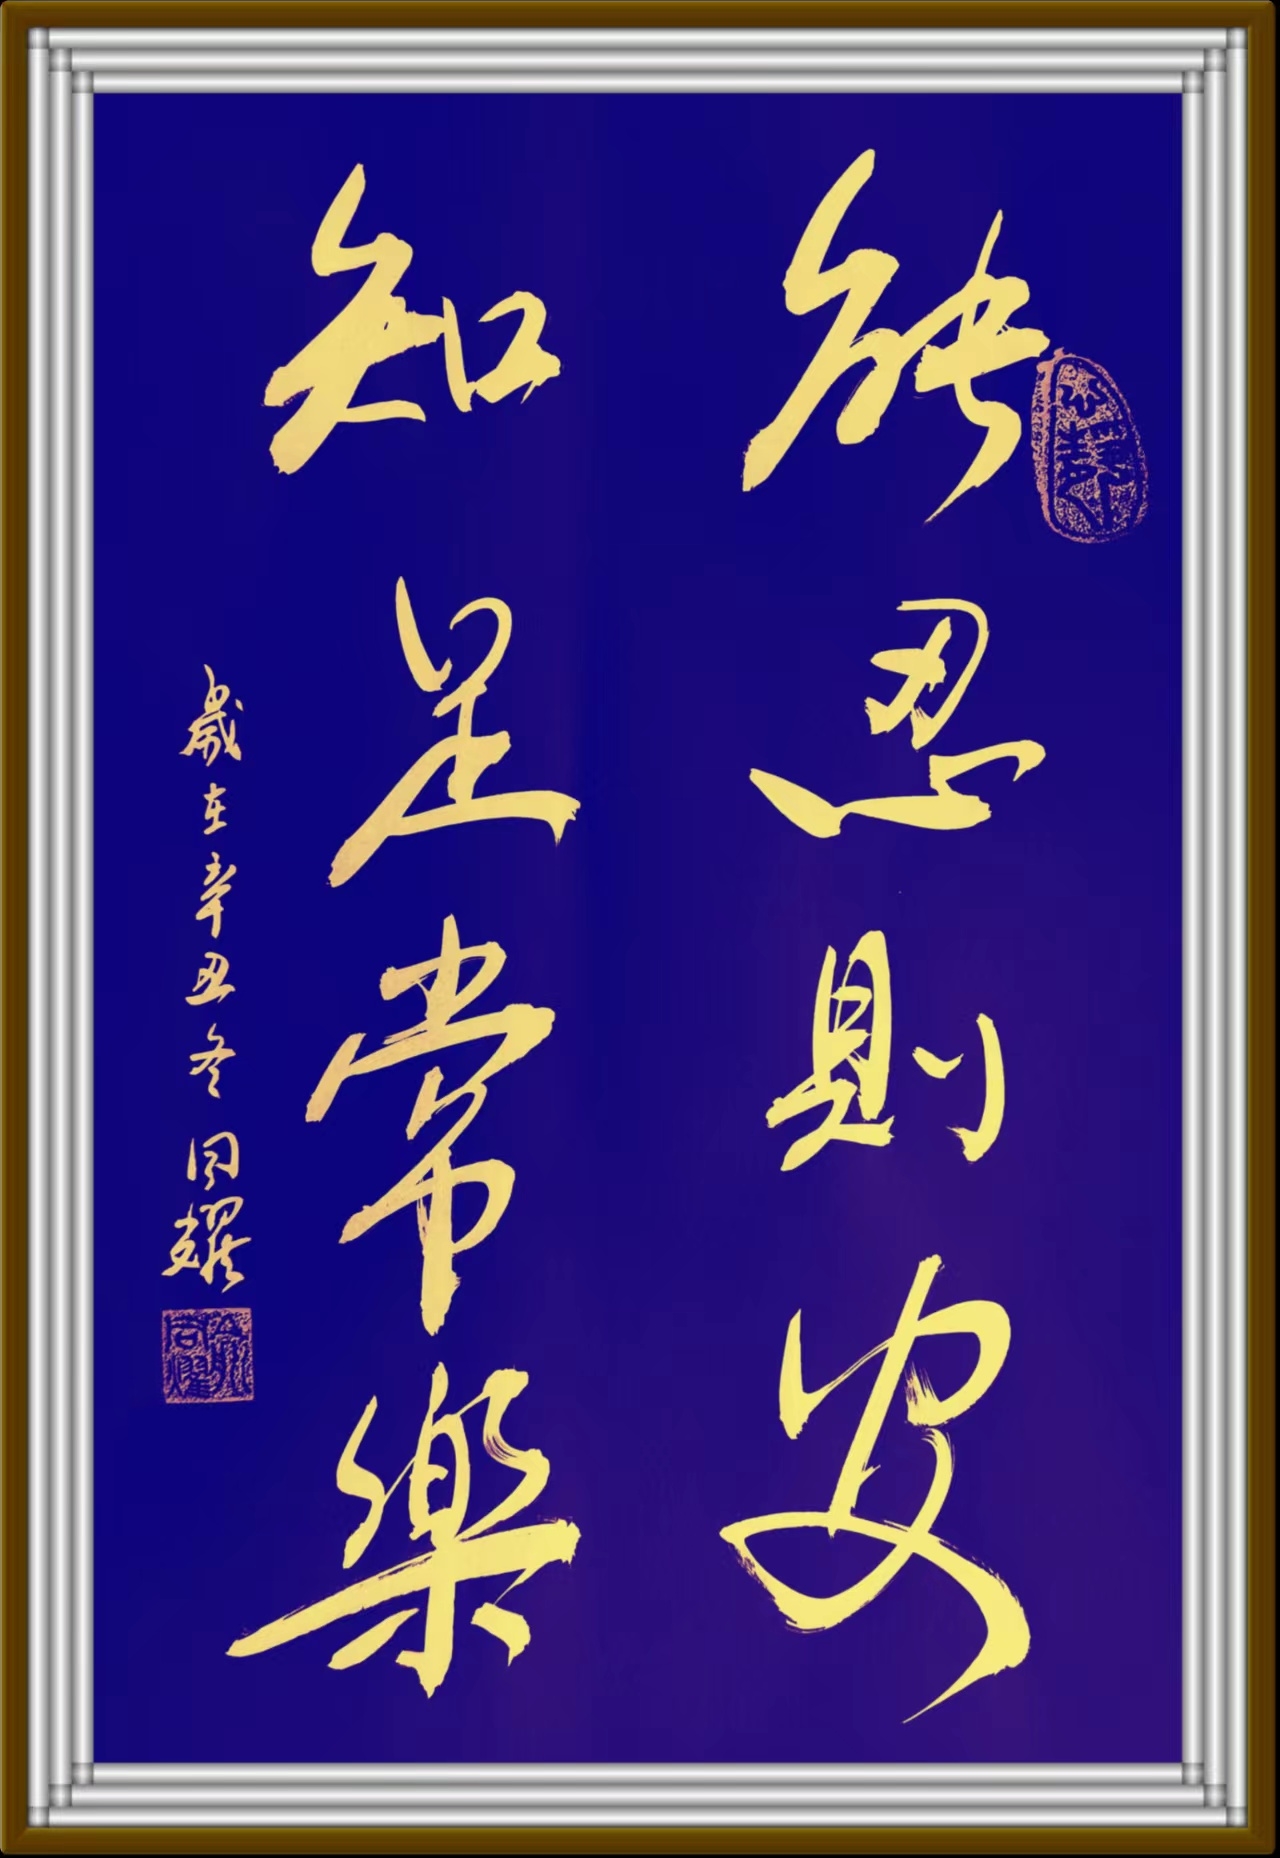 能忍則安
知足常樂
歲在辛丑冬同耀